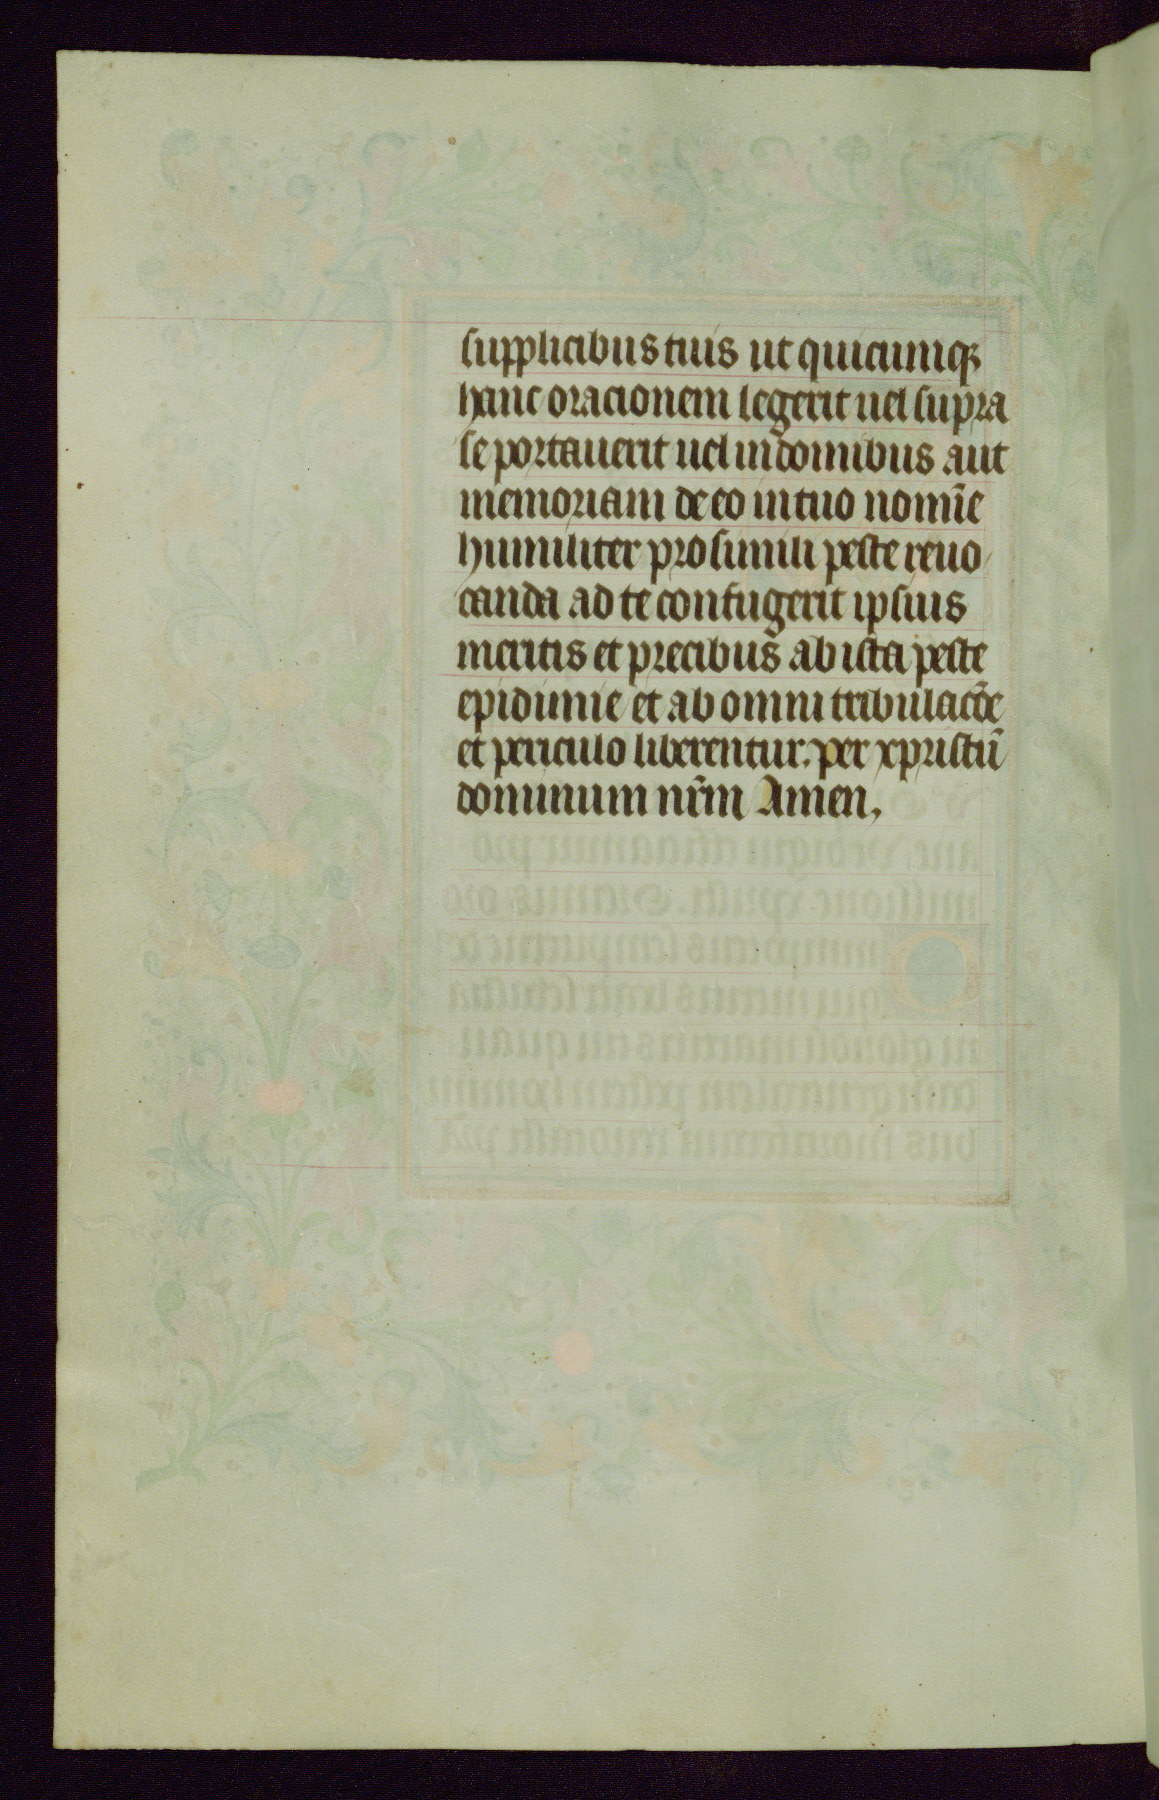 supplicibus tuis ut quicumqꝫ
hanc oracionem legerit uel supra
se portauerit uel in domibus aut
memoriam de eo in tuo nomīe
humiliter pro simili peste reuo
canda ad te confugerit ipsius
meritis et precibus ab ista peste
epidimie et ab omni tribulacōe
et periculo liberentur. per xpristū
dominum nr̄m Amen,